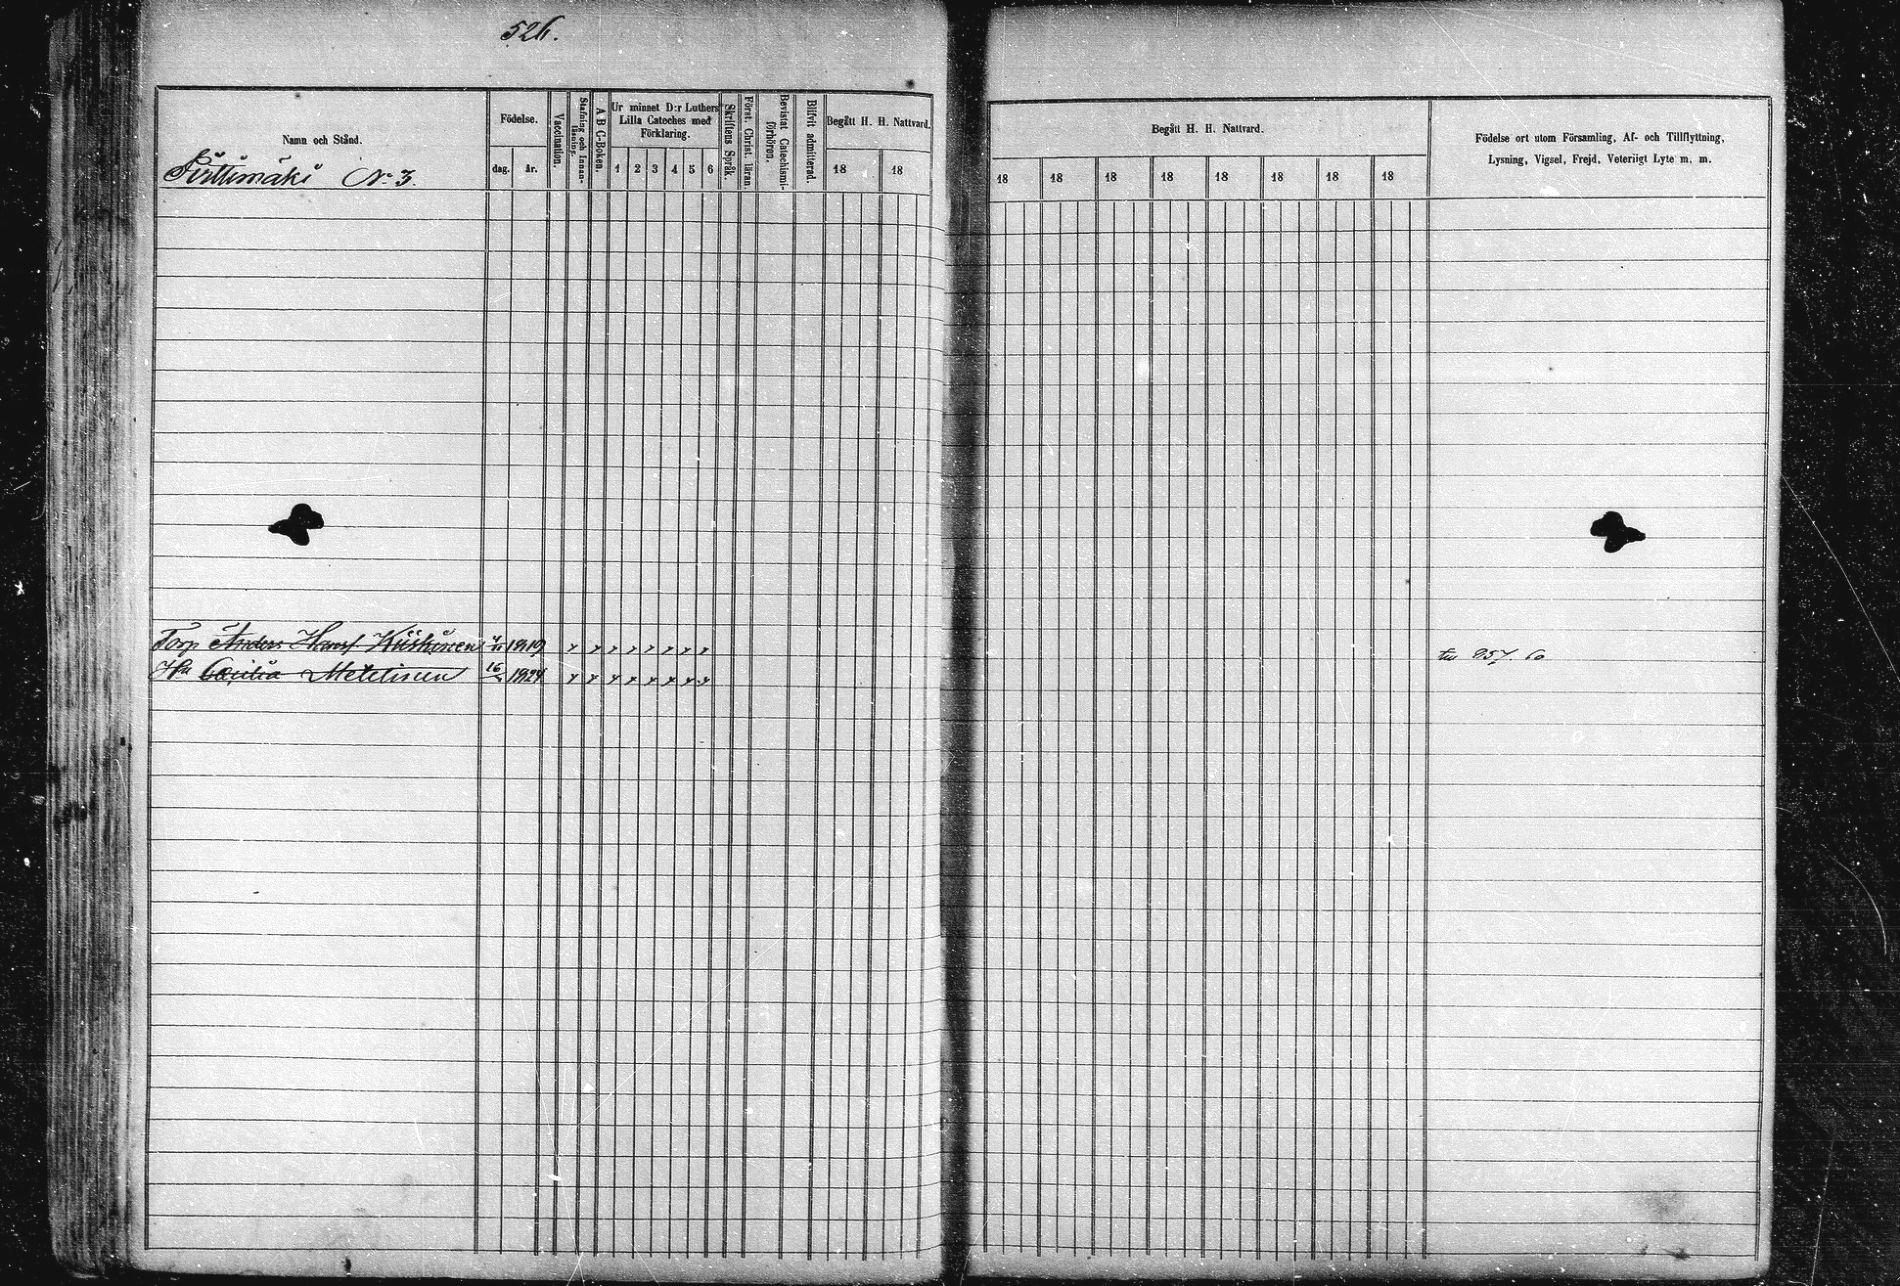 526.
Namn och Stånd.
Pirttimäki No 3.
Födelse.
dag. år.
Vaccination.
Stafning och Innanläsning.
A B C-Boken.
Ur minnet D:r Luthers
Lilla Cateches med
Förklaring.
1 2 3 4 5 6
Skriftens Språk.
Först. Christ. läran.
Bevistat Catechismi-förhören.
Blifvit admitterad.
Begått H. H. Nattvard.
18 18
Begått H. H. Nattvard.
18 18 18 18 18 18 18 18
Födelse ort utom Församling, Af- och Tillflyttning,
Lysning, Vigsel, Frejd, Veterligt Lyte m. m.
Torp Anders Hansf Kiiskinen 1819
857. 60
Hu Cecilia Metelinen 16 1824